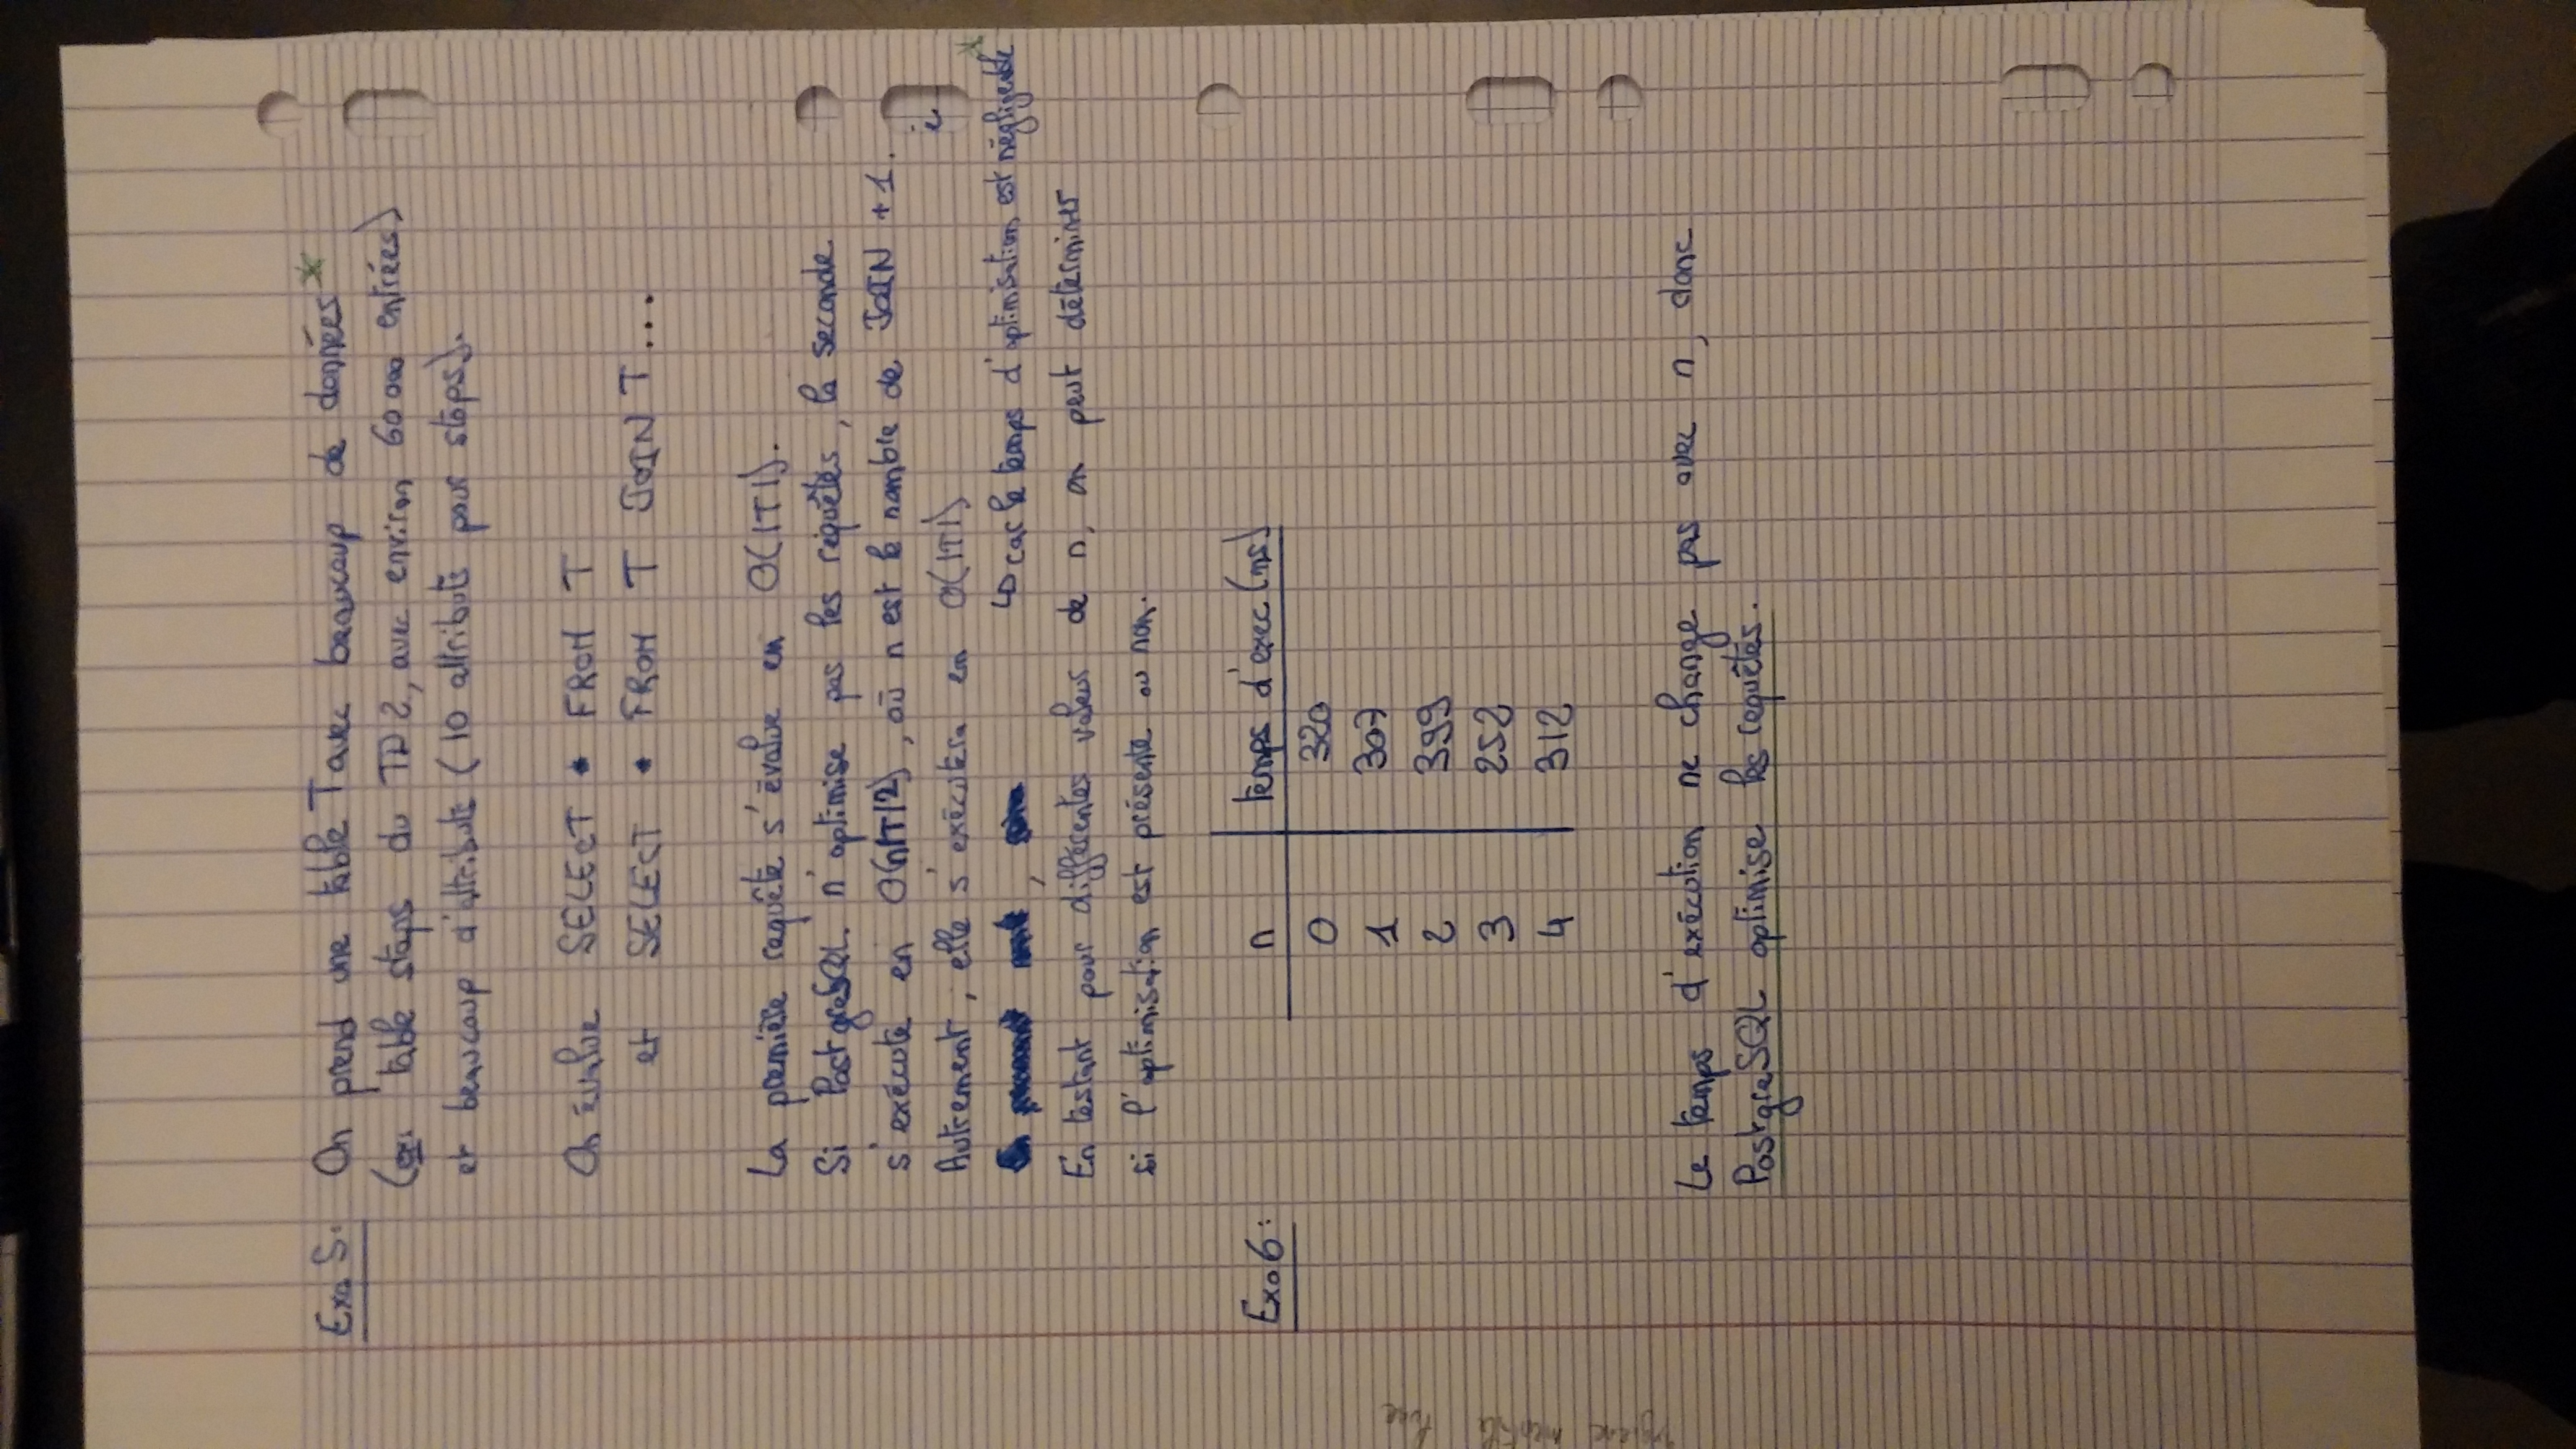 Exo 5: On prend une table T avec beaucoup de données *
(ex: table stops du TD 2, avec environ 60 000 entrées)
et beaucoup d'attributs (10 attributs pour stops).
On évalue SELECT * FROM T
et SELECT * FROM T JOIN T...
La première requête s'évalue en O(|T|).
Si PostgreSQL n'optimise pas les requêtes, la seconde
s'exécute en O(n|T|2), où n est le nombre de JOIN + 1.
Autrement, elle s'exécutera en O(|T|)
↳ car le temps d'optimisation est négligeable *
En testant pour différentes valeurs de n, on peut déterminer
si l'optimisation est présente ou non.
Exo 6: n temps d'exec (ms)
0 320
1 307
2 399
3 252
4 312
Le temps d'exécution ne change pas avec n, donc
PostgreSQL optimise les requêtes.